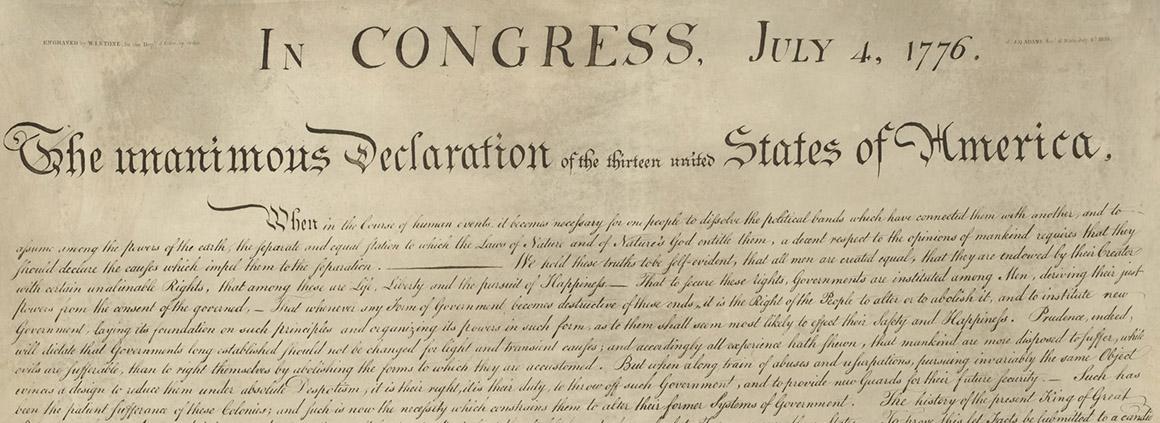 ENGRAVED by W.I.STONE, for the Dept. of State, by order
IN CONGRESS, JULY 4, 1776.
The unanimous Declaration of the thirteen united States of America,
When in the Course of human events, it becomes necessary for one people to dissolve the political bands which have connected them with another, and to
assume among the powers of the earth, the separate and equal station to which the Laws of Nature and of Nature's God entitle them, a decent respect to the opinions of mankind requires that they
should declare the causes which impel them to the separation. — We hold these truths to be self-evident, that all men are created equal, that they are endowed by their Creator
with certain unalienable Rights, that among these are Life, Liberty and the pursuit of Happiness. — That to secure these rights, Governments are instituted among Men, deriving their just
powers from the consent of the governed, — That whenever any Form of Government becomes destructive of these ends, it is the Right of the People to alter or to abolish it, and to institute new
Government, laying its foundation on such principles and organizing its powers in such form, as to them shall seem most likely to effect their Safety and Happiness. Prudence, indeed,
will dictate that Governments long established should not be changed for light and transient causes; and accordingly all experience hath shewn, that mankind are more disposed to suffer, while
evils are sufferable, than to right themselves by abolishing the forms to which they are accustomed. But when a long train of abuses and usurpations, pursuing invariably the same Object
evinces a design to reduce them under absolute Despotism, it is their right, it is their duty, to throw off such Government, and to provide new Guards for their future security. — Such has
been the patient sufferance of these Colonies; and such is now the necessity which constrains them to alter their former Systems of Government. The history of the present King of Great
To prove this let Facts be submitted to a candid